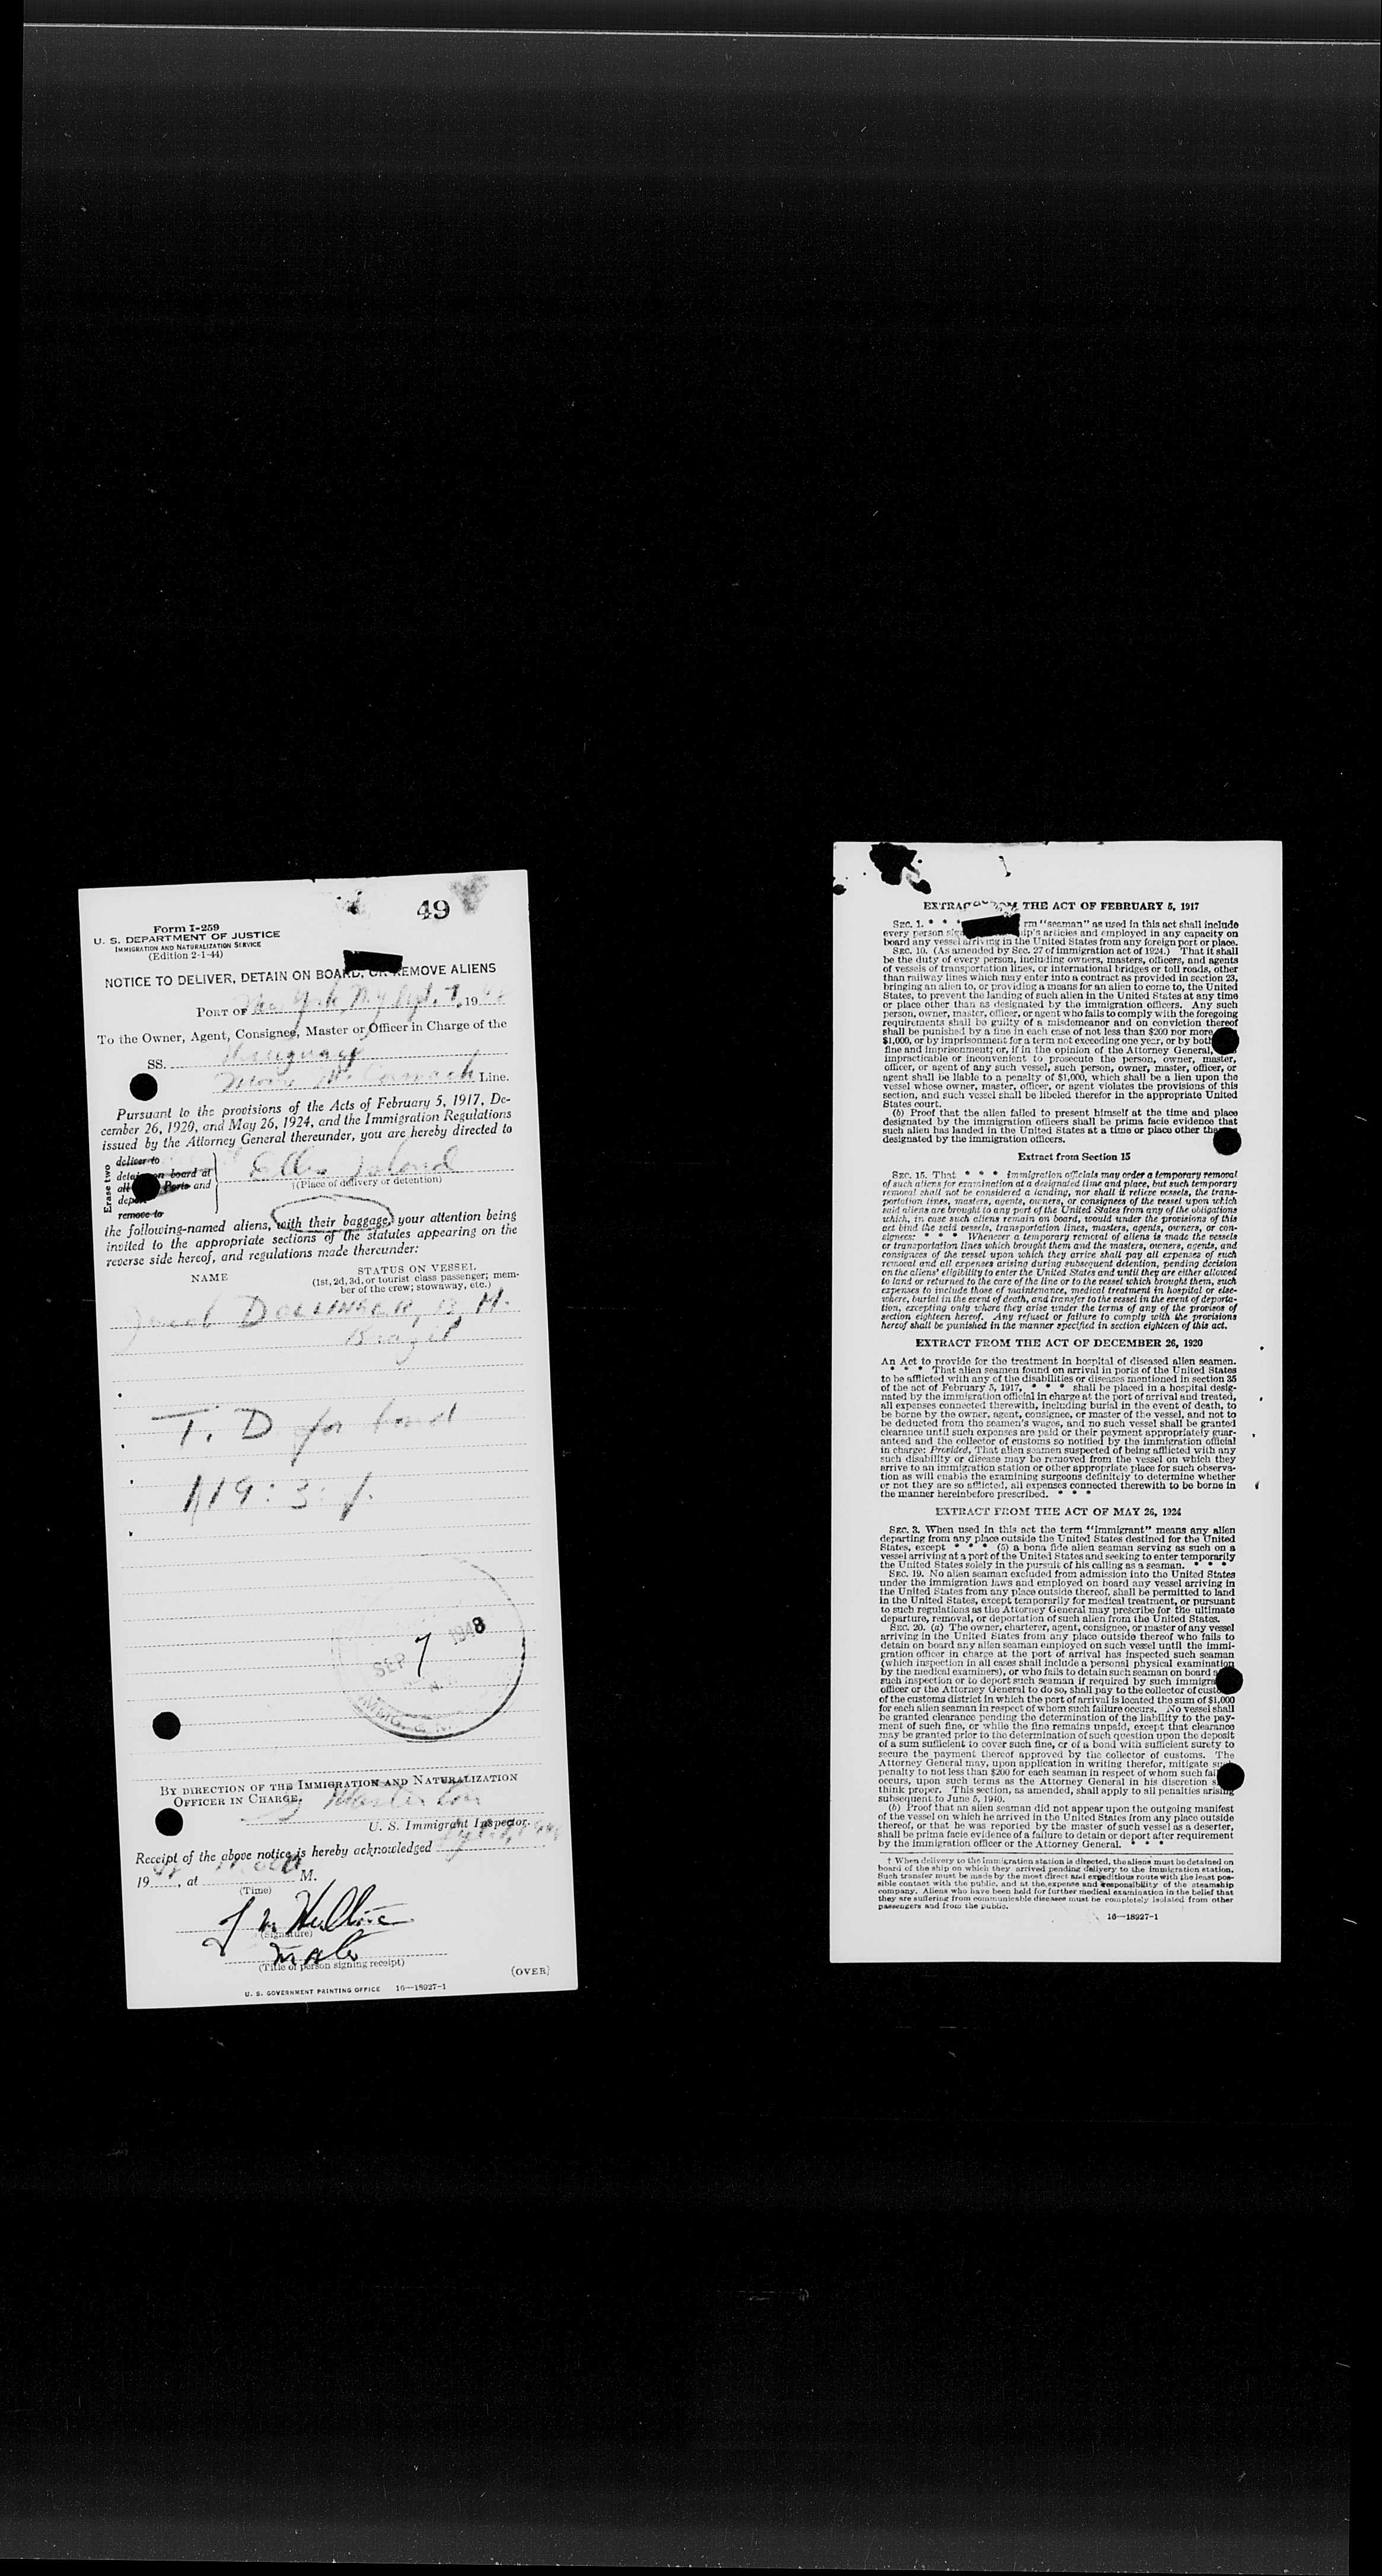 49
Form I-259
U. S. DEPARTMENT OF JUSTICE
IMMIGRATION AND NATURALIZATION SERVICE
(Edition 2-1-44)
NOTICE TO DELIVER, DETAIN ON BOARD, OR REMOVE ALIENS
PORT OF New York, N.Y. Sept. 7, 19
To the Owner, Agent, Consignee, Master or Officer in Charge of the
SS. Uruguay
Moore McCormack Line.
Pursuant to the provisions of the Acts of February 5, 1917, De-
cember 26, 1920, and May 26, 1924, and the Immigration Regulations
issued by the Attorney General thereunder, you are hereby directed to
Erase two
deliver to
detain on board at
all Ports and
deport
remove to
Ellis Island
†(Place of delivery or detention)
the following-named aliens, with their baggage, your attention being
invited to the appropriate sections of the statutes appearing on the
reverse side hereof, and regulations made thereunder:
NAME
STATUS ON VESSEL
(1st, 2d, 3d, or tourist class passenger; mem-
ber of the crew; stowaway, etc.)
Jacob DOLLINGER, M.
Brazil
T. D for bond
119:3:1.
SEP 7 1948
IMMIG.
BY DIRECTION OF THE IMMIGRATION AND NATURALIZATION
OFFICER IN CHARGE.
U. S. Immigrant Inspector.
Receipt of the above notice is hereby acknowledged
19 , at M.
(Time)
(Signature)
(Title of person signing receipt)
(OVER)
U. S. GOVERNMENT PRINTING OFFICE 16—18927-1
EXTRACT FROM THE ACT OF FEBRUARY 5, 1917
SEC. 1. * * * rm "seaman" as used in this act shall include
every person sig ip's articles and employed in any capacity on
board any vessel arriving in the United States from any foreign port or place.
SEC. 10. (As amended by Sec. 27 of immigration act of 1924.) That it shall
be the duty of every person, including owners, masters, officers, and agents
of vessels of transportation lines, or international bridges or toll roads, other
than railway lines which may enter into a contract as provided in section 23,
bringing an alien to, or providing a means for an alien to come to, the United
States, to prevent the landing of such alien in the United States at any time
or place other than as designated by the immigration officers. Any such
person, owner, master, officer, or agent who fails to comply with the foregoing
requirements shall be guilty of a misdemeanor and on conviction thereof
shall be punished by a fine in each case of not less than $200 nor more
$1,000, or by imprisonment for a term not exceeding one year, or by both
fine and imprisonment; or, if in the opinion of the Attorney General,
impracticable or inconvenient to prosecute the person, owner, master,
officer, or agent of any such vessel, such person, owner, master, officer, or
agent shall be liable to a penalty of $1,000, which shall be a lien upon the
vessel whose owner, master, officer, or agent violates the provisions of this
section, and such vessel shall be libeled therefor in the appropriate United
States court.
(b) Proof that the alien failed to present himself at the time and place
designated by the immigration officers shall be prima facie evidence that
such alien has landed in the United States at a time or place other than
designated by the immigration officers.
Extract from Section 15
SEC. 15. That * * * immigration officials may order a temporary removal
of such aliens for examination at a designated time and place, but such temporary
removal shall not be considered a landing, nor shall it relieve vessels, the trans-
portation lines, masters, agents, owners, or consignees of the vessel upon which
said aliens are brought to any port of the United States from any of the obligations
which, in case such aliens remain on board, would under the provisions of this
act bind the said vessels, transportation lines, masters, agents, owners, or con-
signees: * * * Whenever a temporary removal of aliens is made the vessels
or transportation lines which brought them and the masters, owners, agents, and
consignees of the vessel upon which they arrive shall pay all expenses of such
removal and all expenses arising during subsequent detention, pending decision
on the aliens' eligibility to enter the United States and until they are either allowed
to land or returned to the care of the line or to the vessel which brought them, such
expenses to include those of maintenance, medical treatment in hospital or else-
where, burial in the event of death, and transfer to the vessel in the event of deporta-
tion, excepting only where they arise under the terms of any of the provisos of
section eighteen hereof. Any refusal or failure to comply with the provisions
hereof shall be punished in the manner specified in section eighteen of this act.
EXTRACT FROM THE ACT OF DECEMBER 26, 1920
An Act to provide for the treatment in hospital of diseased alien seamen.
* * * That alien seamen found on arrival in ports of the United States
to be afflicted with any of the disabilities or diseases mentioned in section 35
of the act of February 5, 1917, * * * shall be placed in a hospital desig-
nated by the immigration official in charge at the port of arrival and treated,
all expenses connected therewith, including burial in the event of death, to
be borne by the owner, agent, consignee, or master of the vessel, and not to
be deducted from the seamen's wages, and no such vessel shall be granted
clearance until such expenses are paid or their payment appropriately guar-
anteed and the collector of customs so notified by the immigration official
in charge: Provided, That alien seamen suspected of being afflicted with any
such disability or disease may be removed from the vessel on which they
arrive to an immigration station or other appropriate place for such observa-
tion as will enable the examining surgeons definitely to determine whether
or not they are so afflicted, all expenses connected therewith to be borne in
the manner hereinbefore prescribed. * * *
EXTRACT FROM THE ACT OF MAY 26, 1924
SEC. 3. When used in this act the term "immigrant" means any alien
departing from any place outside the United States destined for the United
States, except * * * (5) a bona fide alien seaman serving as such on a
vessel arriving at a port of the United States and seeking to enter temporarily
the United States solely in the pursuit of his calling as a seaman. * * *
SEC. 19. No alien seaman excluded from admission into the United States
under the immigration laws and employed on board any vessel arriving in
the United States from any place outside thereof, shall be permitted to land
in the United States, except temporarily for medical treatment, or pursuant
to such regulations as the Attorney General may prescribe for the ultimate
departure, removal, or deportation of such alien from the United States.
SEC. 20. (a) The owner, charterer, agent, consignee, or master of any vessel
arriving in the United States from any place outside thereof who fails to
detain on board any alien seaman employed on such vessel until the immi-
gration officer in charge at the port of arrival has inspected such seaman
(which inspection in all cases shall include a personal physical examination
by the medical examiners), or who fails to detain such seaman on board a
such inspection or to deport such seaman if required by such immigra
officer or the Attorney General to do so, shall pay to the collector of custo
of the customs district in which the port of arrival is located the sum of $1,000
for each alien seaman in respect of whom such failure occurs. No vessel shall
be granted clearance pending the determination of the liability to the pay-
ment of such fine, or while the fine remains unpaid, except that clearance
may be granted prior to the determination of such question upon the deposit
of a sum sufficient to cover such fine, or of a bond with sufficient surety to
secure the payment thereof approved by the collector of customs. The
Attorney General may, upon application in writing therefor, mitigate su
penalty to not less than $200 for each seaman in respect of whom such fail
occurs, upon such terms as the Attorney General in his discretion s
think proper. This section, as amended, shall apply to all penalties arising
subsequent to June 5, 1940.
(b) Proof that an alien seaman did not appear upon the outgoing manifest
of the vessel on which he arrived in the United States from any place outside
thereof, or that he was reported by the master of such vessel as a deserter,
shall be prima facie evidence of a failure to detain or deport after requirement
by the immigration officer or the Attorney General. * * *
† When delivery to the immigration station is directed, the aliens must be detained on
board of the ship on which they arrived pending delivery to the immigration station.
Such transfer must be made by the most direct and expeditious route with the least pos-
sible contact with the public, and at the expense and responsibility of the steamship
company. Aliens who have been held for further medical examination in the belief that
they are suffering from communicable diseases must be completely isolated from other
passengers and from the public.
16—18927-1